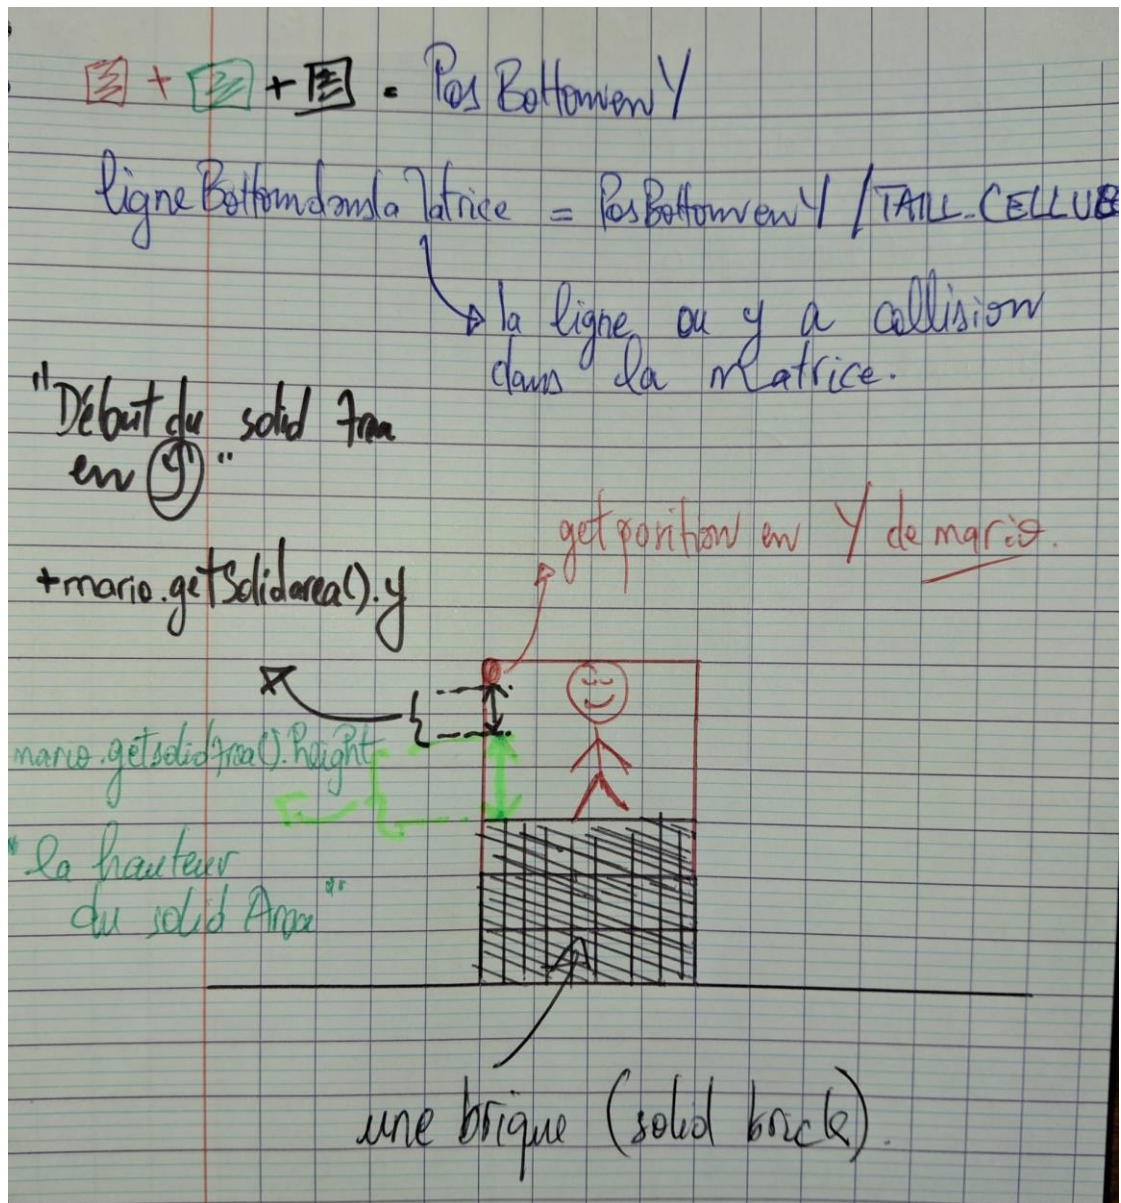 + + = Pos Bottom en Y
ligne Bottom dans la Matrice = Pos Bottom en Y / TAILL_CELLULE
la ligne ou y a collision
dans la Matrice.
"Début du solid Area
en y"
get position en Y de mario.
+mario.getSolidarea().y
mario.getsolidArea().height
"la hauteur
du solid Area"
une brique (solid brick).